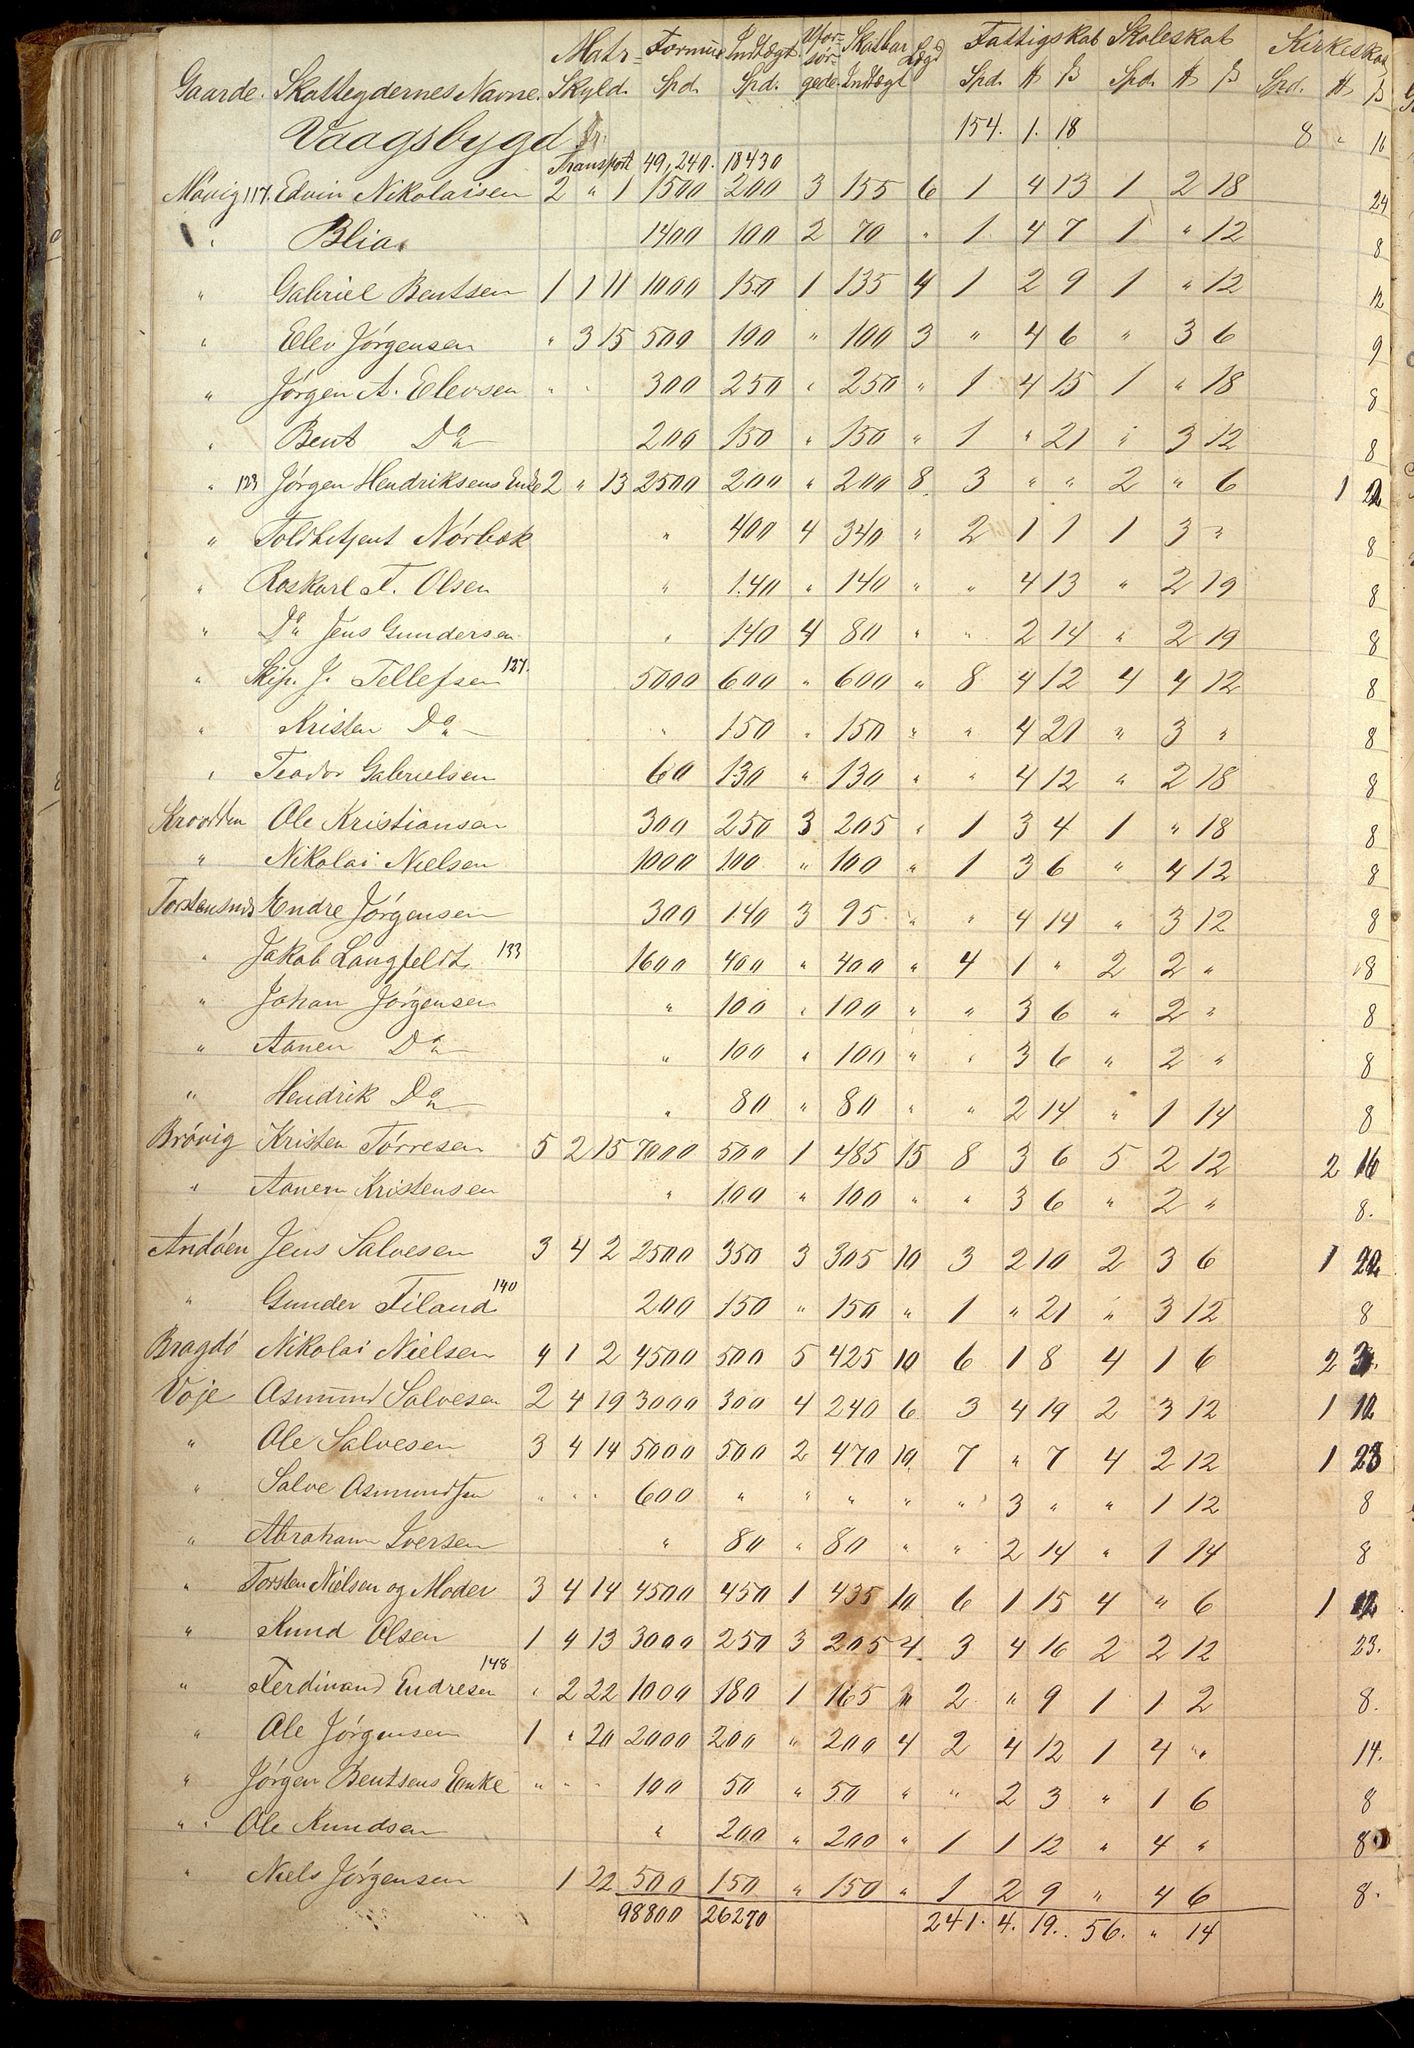 Gaarde. Skatteydernes Navne. Matr- Skyld. Formue Spd. Indtægt. Spd. Ufor- sør- gede. Skatbar Indtægt Lægd Fattigskat Spd. # ß Skoleskat Spd. # ß Kirkeskat Spd. # ß
Vaagsbygd 154. 1. 18 8 " 16
Transport 49,240. 18430
Møvig 117. Edvin Nikolaisen 2 " 1 1500 200 3 155 6 1 4 13 1 2 18 24
" Blia. 1400 100 2 70 " 1 4 7 1 " 12 8
" Gabriel Bentsen 1 1 11 1000 150 1 135 4 1 2 9 1 " 12 12
" Elev Jørgensen " 3 15 500 100 " 100 3 " 4 6 " 3 6 9
" Jørgen A. Elevsen " " 300 250 " 250 " 1 4 15 1 " 18 8
" Bent Do 200 150 " 150 " 1 " 21 " 3 12 8
" 123 Jørgen Hendriksens Enke 2 " 13 2500 200 " 200 8 3 " " 2 " 6 1
" Toldbetjent Nørbæk " 400 4 340 " 2 1 1 1 3 " 8
" Roskarl T. Olsen " 140 " 140 " " 4 13 " 2 19 8
" Do Jens Gundersen " 140 4 80 " " 2 14 " 2 19 8
" Skip. J. Tellefsen 127. 5000 600 " 600 " 8 4 12 4 4 12 8
" Kristen Do " 150 " 150 " " 4 21 " 3 " 8
" Teodor Gabrielsen 60 130 " 130 " " 4 12 " 2 18 8
Kroodden Ole Kristiansen 300 250 3 205 " 1 3 4 1 " 18 8
" Nikolai Nielsen 1000 100 " 100 " 1 3 6 " 4 12 8
Torstensnes Endre Jørgensen 300 140 3 95 " " 4 14 " 3 12 8
" Jakob Langfeldt 133 1600 400 " 400 " 4 1 " 2 2 " 8
" Johan Jørgensen " 100 " 100 " " 3 6 " 2 " 8
" Aanen Do " 100 " 100 " " 3 6 " 2 " 8
" Hendrik Do " 80 " 80 " " 2 14 " 1 14 8
Brøvig Kristen Tørresen 5 2 15 7000 500 1 485 15 8 3 6 5 2 12 2 16
" Aanen Kristensen " 100 " 100 " " 3 6 " 2 " 8.
Andøen Jens Salvesen 3 4 2 2500 350 3 305 10 3 2 10 2 3 6 1 22
" Gunder Filand 140 200 150 " 150 " 1 " 21 " 3 12 8
Bragdø Nikolai Nielsen 4 1 2 4500 500 5 425 10 6 1 8 4 1 6 2 3.
Voje Asmund Salvesen 2 4 19 3000 300 4 240 6 3 4 19 2 3 12 1 12
" Ole Salvesen 3 4 14 5000 500 2 470 10 7 " 7 4 2 12 1 23
" Salve Asmundsen " " " 600 " " " " " 3 " " 1 12 8
" Abraham Iversen " 80 " 80 " " 2 14 " 1 14 8
" Torsten Nielsen og Moder 3 4 14 4500 450 1 435 10 6 1 15 4 " 6 1 12
" Knud Olsen 1 4 13 3000 250 3 205 4. 3 4 16 2 2 12 23.
" Ferdinand Endresen 148 " 2 22 1000 180 1 165 " 2 " 9 1 1 2 8.
" Ole Jørgensen 1 " 20 2000 200 " 200 4 2 4 12 1 4 " 14.
" Jørgen Bentsens Enke " " " 100 50 " 50 " " 2 3 " 1 6 8
" " Ole Knudsen " 200 " 200 " 1 1 12 " 4 " 8
" Niels Jørgensen 1 22 500 150 " 150 " 1 2 9 " 4 6 8.
98800 26270 241. 4. 19. 56. " 14